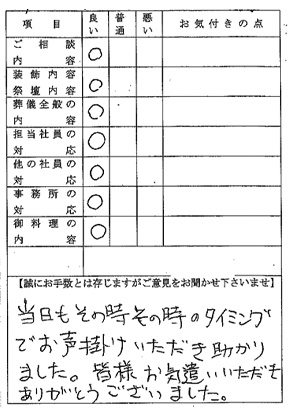 項目 良い 普通 悪い お気付きの点
ご相談内容 ○
装飾内容祭壇内容 ○
葬儀全般の内容 ○
担当社員の対応 ○
他の社員の対応 ○
事務所の対応 ○
御料理の内容 ○
【誠にお手数とは存じますがご意見をお聞かせ下さいませ】
当日もその時その時のタイミング
でお声掛けいただき助かり
ました。皆様お気遣いいただき
ありがとうございました。